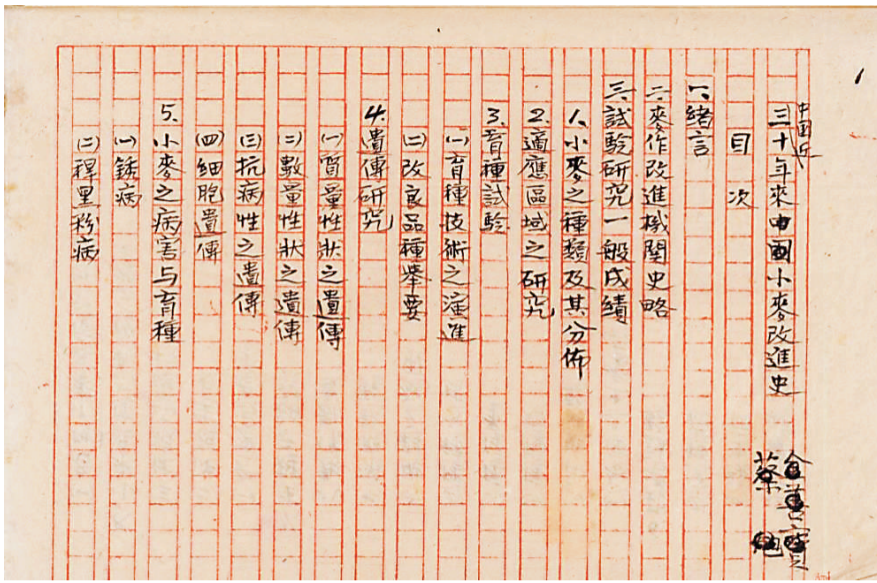 1
中国近
三十年來中國小麥改進史
金善寶
蔡旭
目次
一、緒言
二、麥作改進機關史略
三、試驗研究一般成績
1. 小麥之種類及其分佈
2. 適應區域之研究
3. 育種試驗
(一)育種技術之演進
(二)改良品種舉要
4. 遺傳研究
(一)質量性狀之遺傳
(二)數量性狀之遺傳
(三)抗病性之遺傳
(四)細胞遺傳
5. 小麥之病害与育種
(一)銹病
(二)稈里粉病